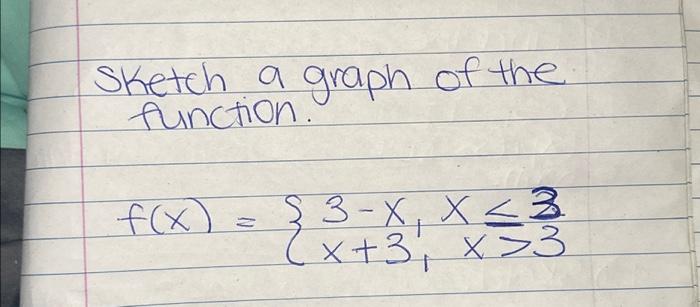 Sketch a graph of the
function.
f(x) = { 3-x, x ≤ 3
x+3, x > 3